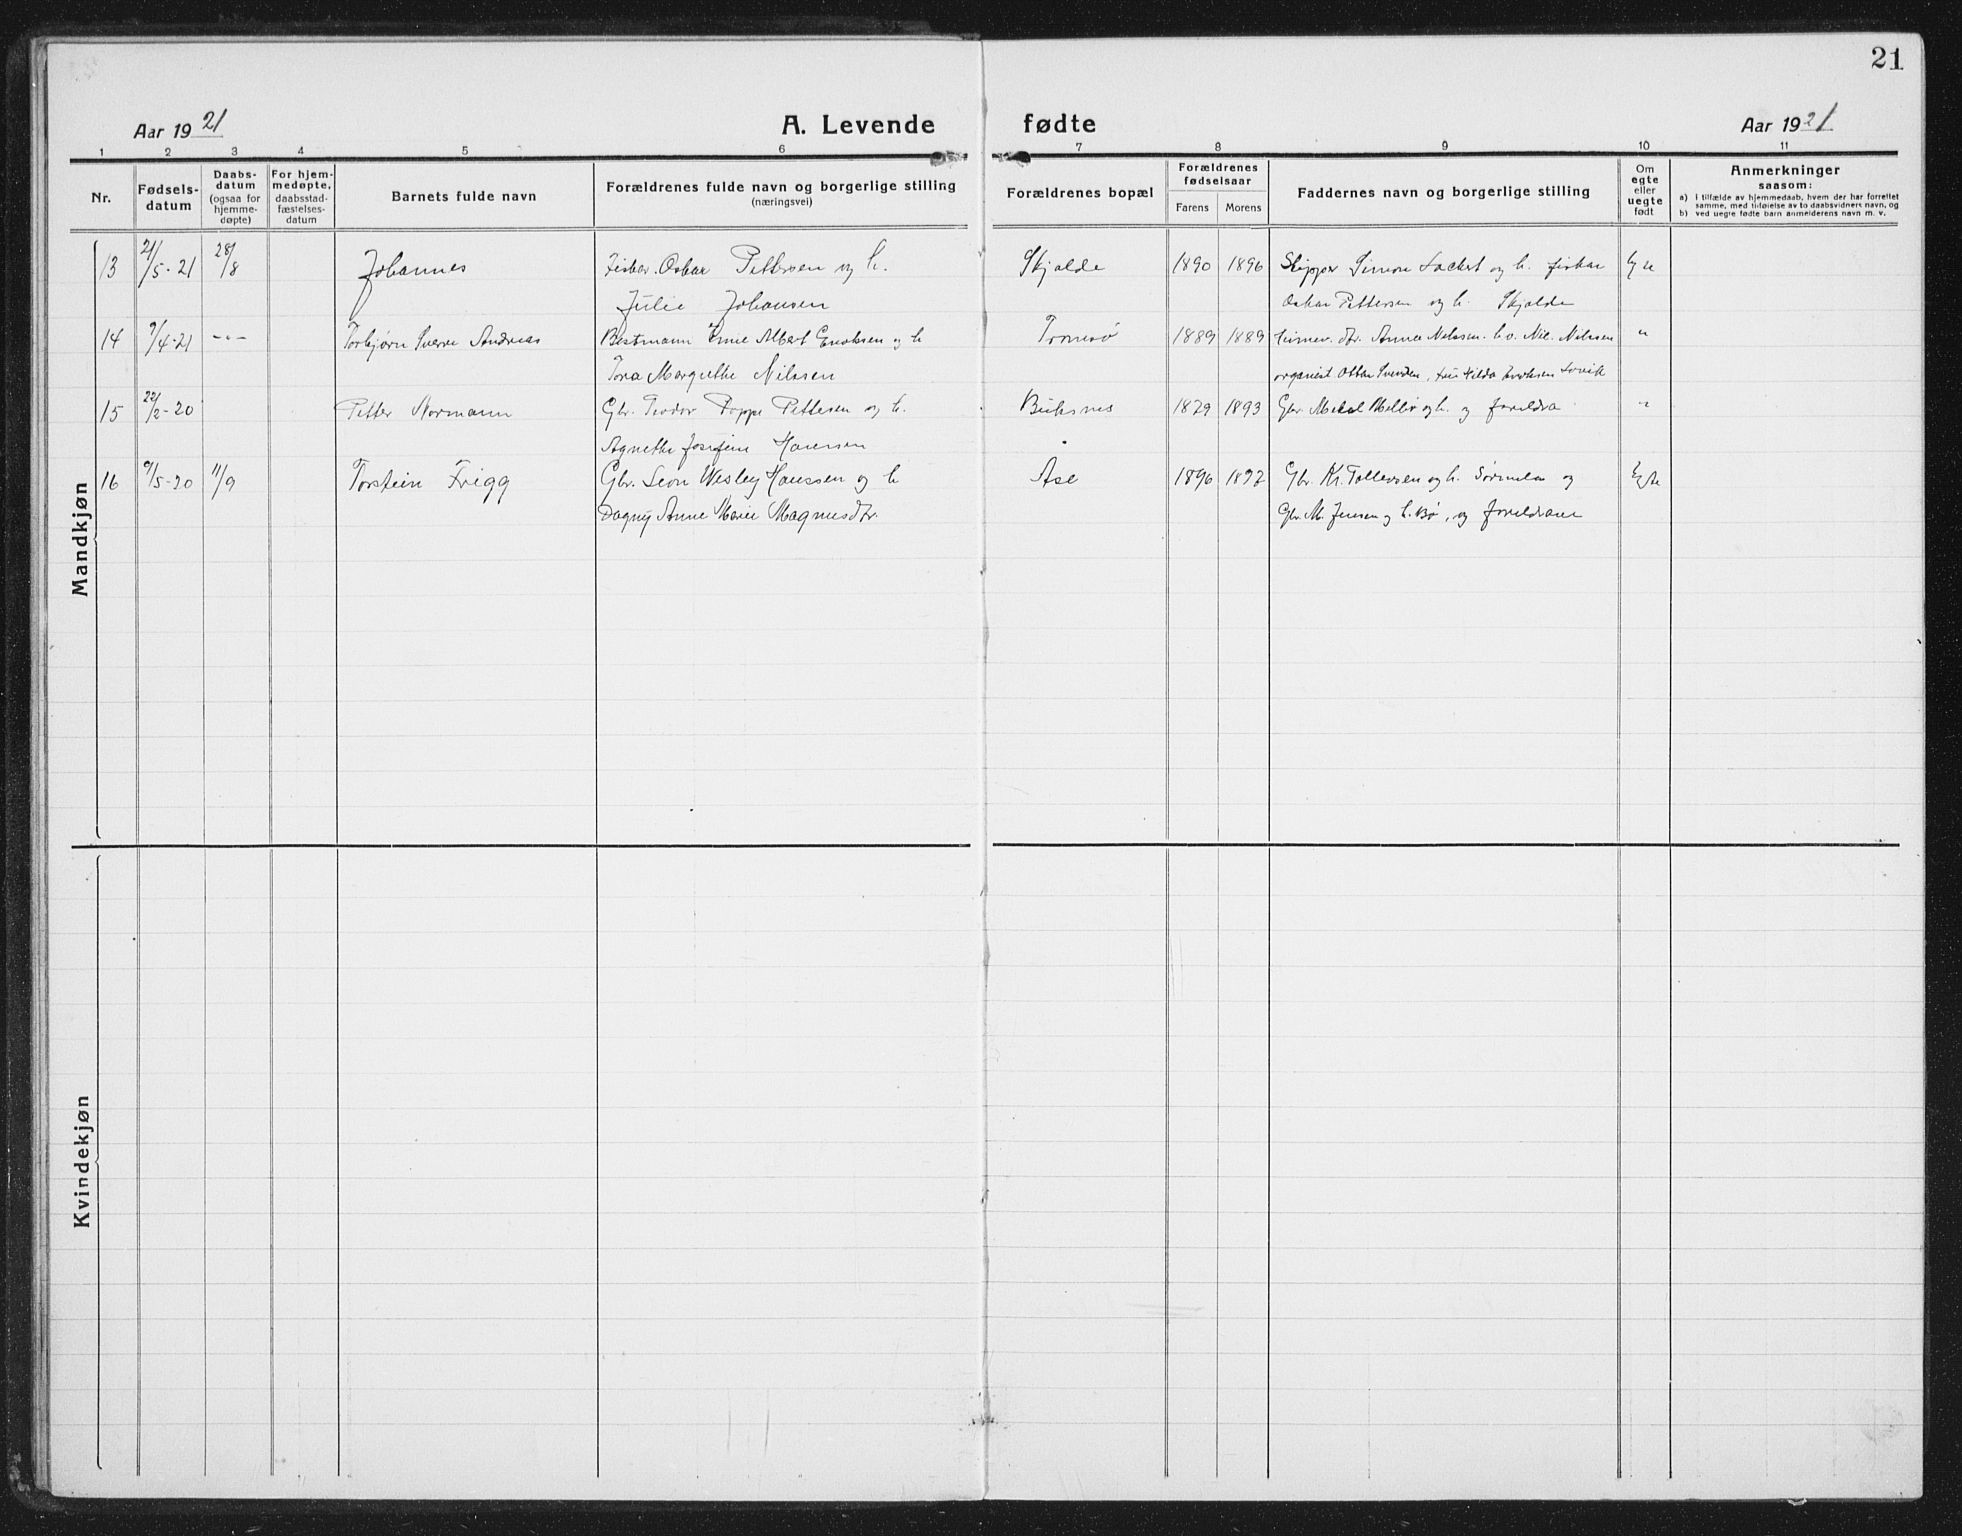 21
Aar 1921
A. Levende fødte
Aar 1921
1 2 3 4 5 6 7 8 9 10 11
Nr.
Fødsels-
datum
Daabs-
datum
(ogsaa for
hjemme-
døpte)
For hjem-
medøpte,
daabsstad-
fæstelses-
datum
Barnets fulde navn
Forældrenes fulde navn og borgerlige stilling
(næringsvei)
Forældrenes bopæl
Forældrenes
fødselsaar
Farens Morens
Faddernes navn og borgerlige stilling
Om
egte
eller
uegte
født
Anmerkninger
saasom:
a) i tilfælde av hjemmedaab, hvem der har forrettet
samme, med tilføielse av to daabsvidners navn, og
b) ved uegte fødte barn anmelderens navn m. v.
Mandkjøn
13 21/5-21 28/8 Johannes Fisker Oskar Pettersen og h. Skjolde 1890 1896 Skipper Simon og h. fisker Egte
Julie Johansen Oskar Pettersen og h. Skjolde
14 9/4-21 -"- Torbjørn Sverre Andreas Bestmann Emil Albert Enoksen og h Tromsø 1889 1889 Anna Nilssen Nilssen "
Tora Margrethe Nilssen organist Ottar fru Hilda
15 22/2-20 Petter Normann Gbr. Teodor Poppe Pettersen og h. Buksnes 1893 Gbr. og h. og foreldra "
Agnethe Josefine Hansen
16 9/5-20 11/9 Torstein Frigg Gbr. Leon Wesley Hanssen og h Åse 1896 1897 Gbr. Kr. Tollevsen og h. og Egte
Dagny Anne Marie Magnusdtr. Gbr. M. Jensen og h. Bø, og foreldrane
Kvindekjøn